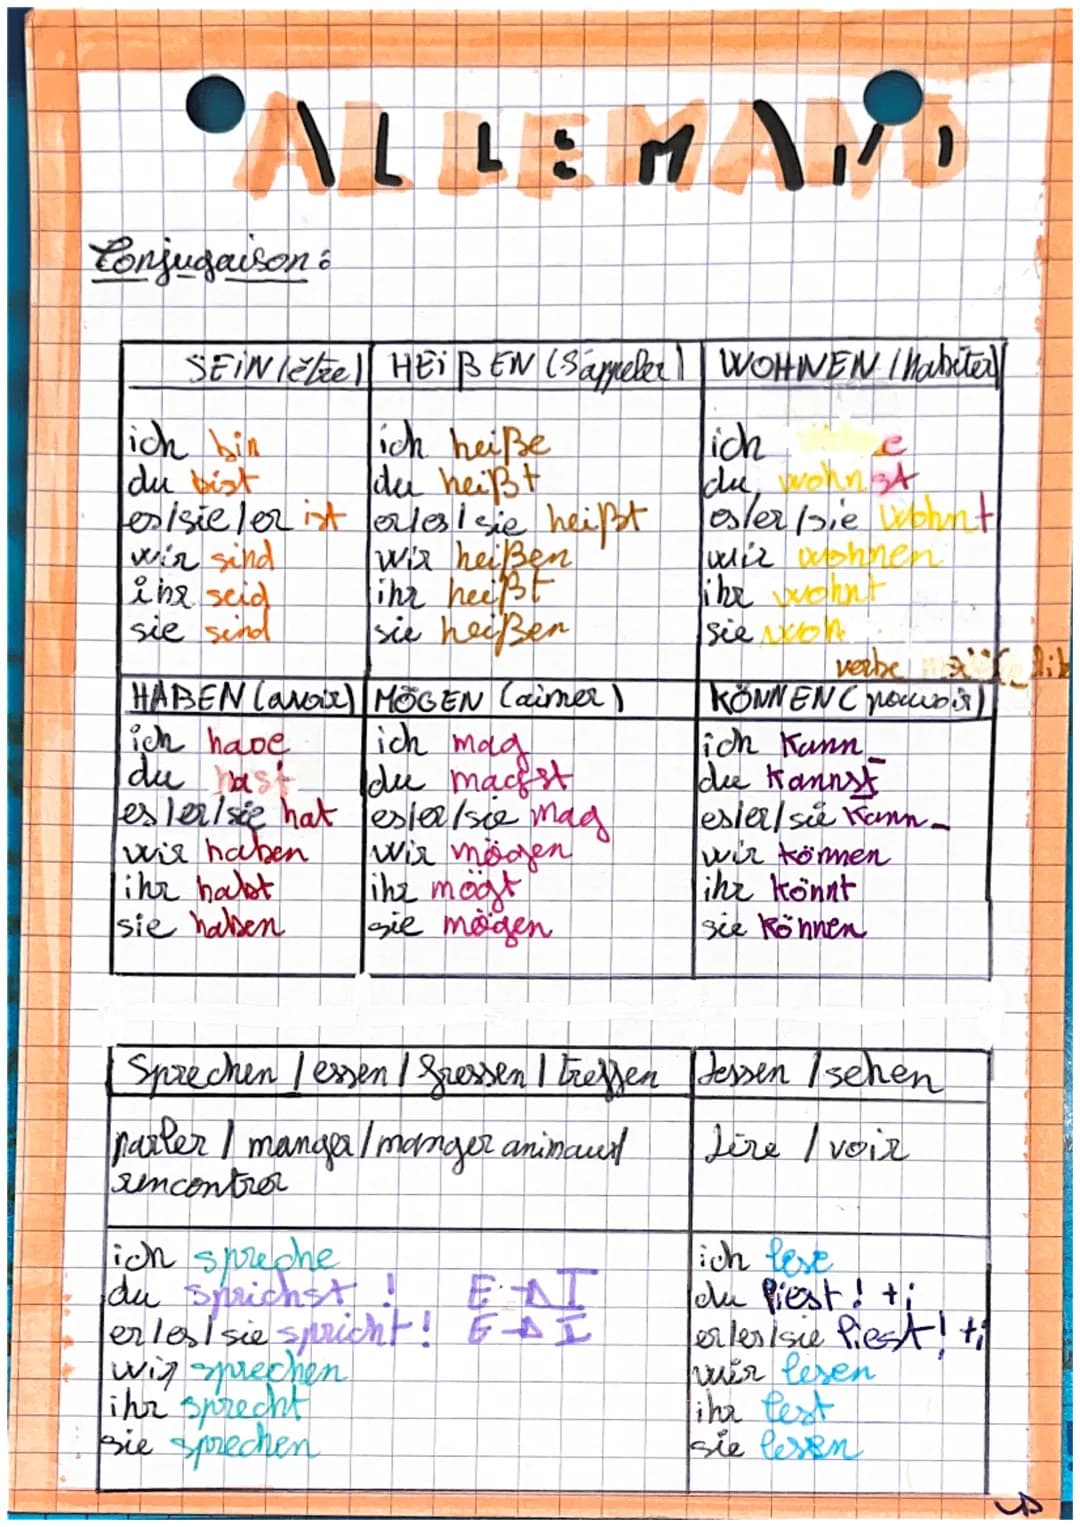 ALLEMAND
Conjugaison :
SEIN (être) HEIßEN (s'appeler) WOHNEN (habiter)
ich bin
du bist
es/sie/er ist
wir sind
ihr seid
sie sind
ich heiße
du heißt
er/es/sie heißt
wir heißen
ihr heißt
sie heißen
ich e
du wohnst
es/er/sie wohnt
wir wohnen
ihr wohnt
sie woh
verbe
HABEN (avoir) MÖGEN (aimer) KÖNNEN (pouvoir)
ich habe
du hast
es/er/sie hat
wir haben
ihr habt
sie haben
ich mag
du magst
es/er/sie mag
wir mögen
ihr mögt
sie mögen
ich kann_
du kannst
es/er/sie kann_
wir können
ihr könnt
sie können
Sprechen / essen / fressen / treffen
parler / manger / manger animaux /
rencontrer
ich spreche
du sprichst ! E → I
er/es/sie spricht ! E → I
wir sprechen
ihr sprecht
sie sprechen
lessen / sehen
Lire / voir
ich lese
du liest ! +i
er/es/sie liest ! +i
wir lesen
ihr lest
sie lesen